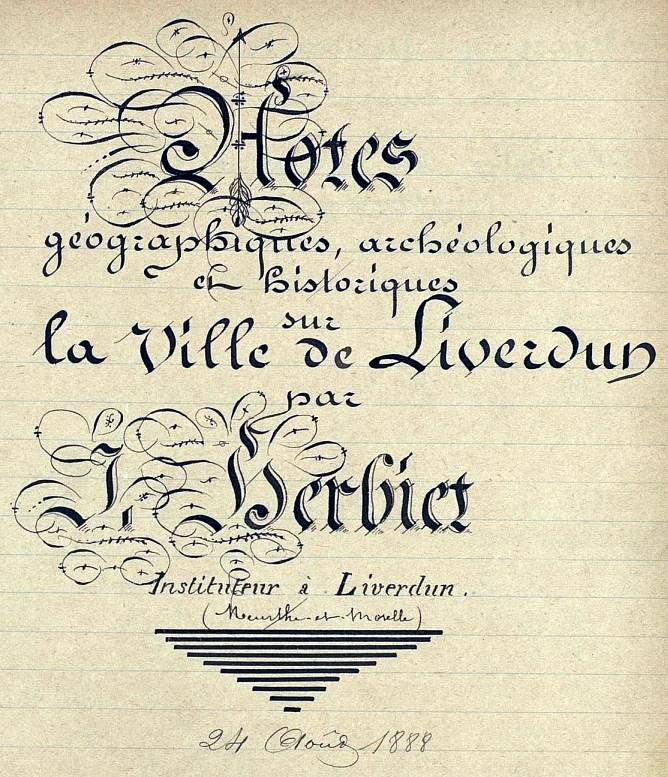 Notes
géographiques, archéologiques
et historiques
sur
la Ville de Liverdun
par
J. Herbiet
Instituteur à Liverdun.
(Meurthe-et-Moselle)
24 Août 1888